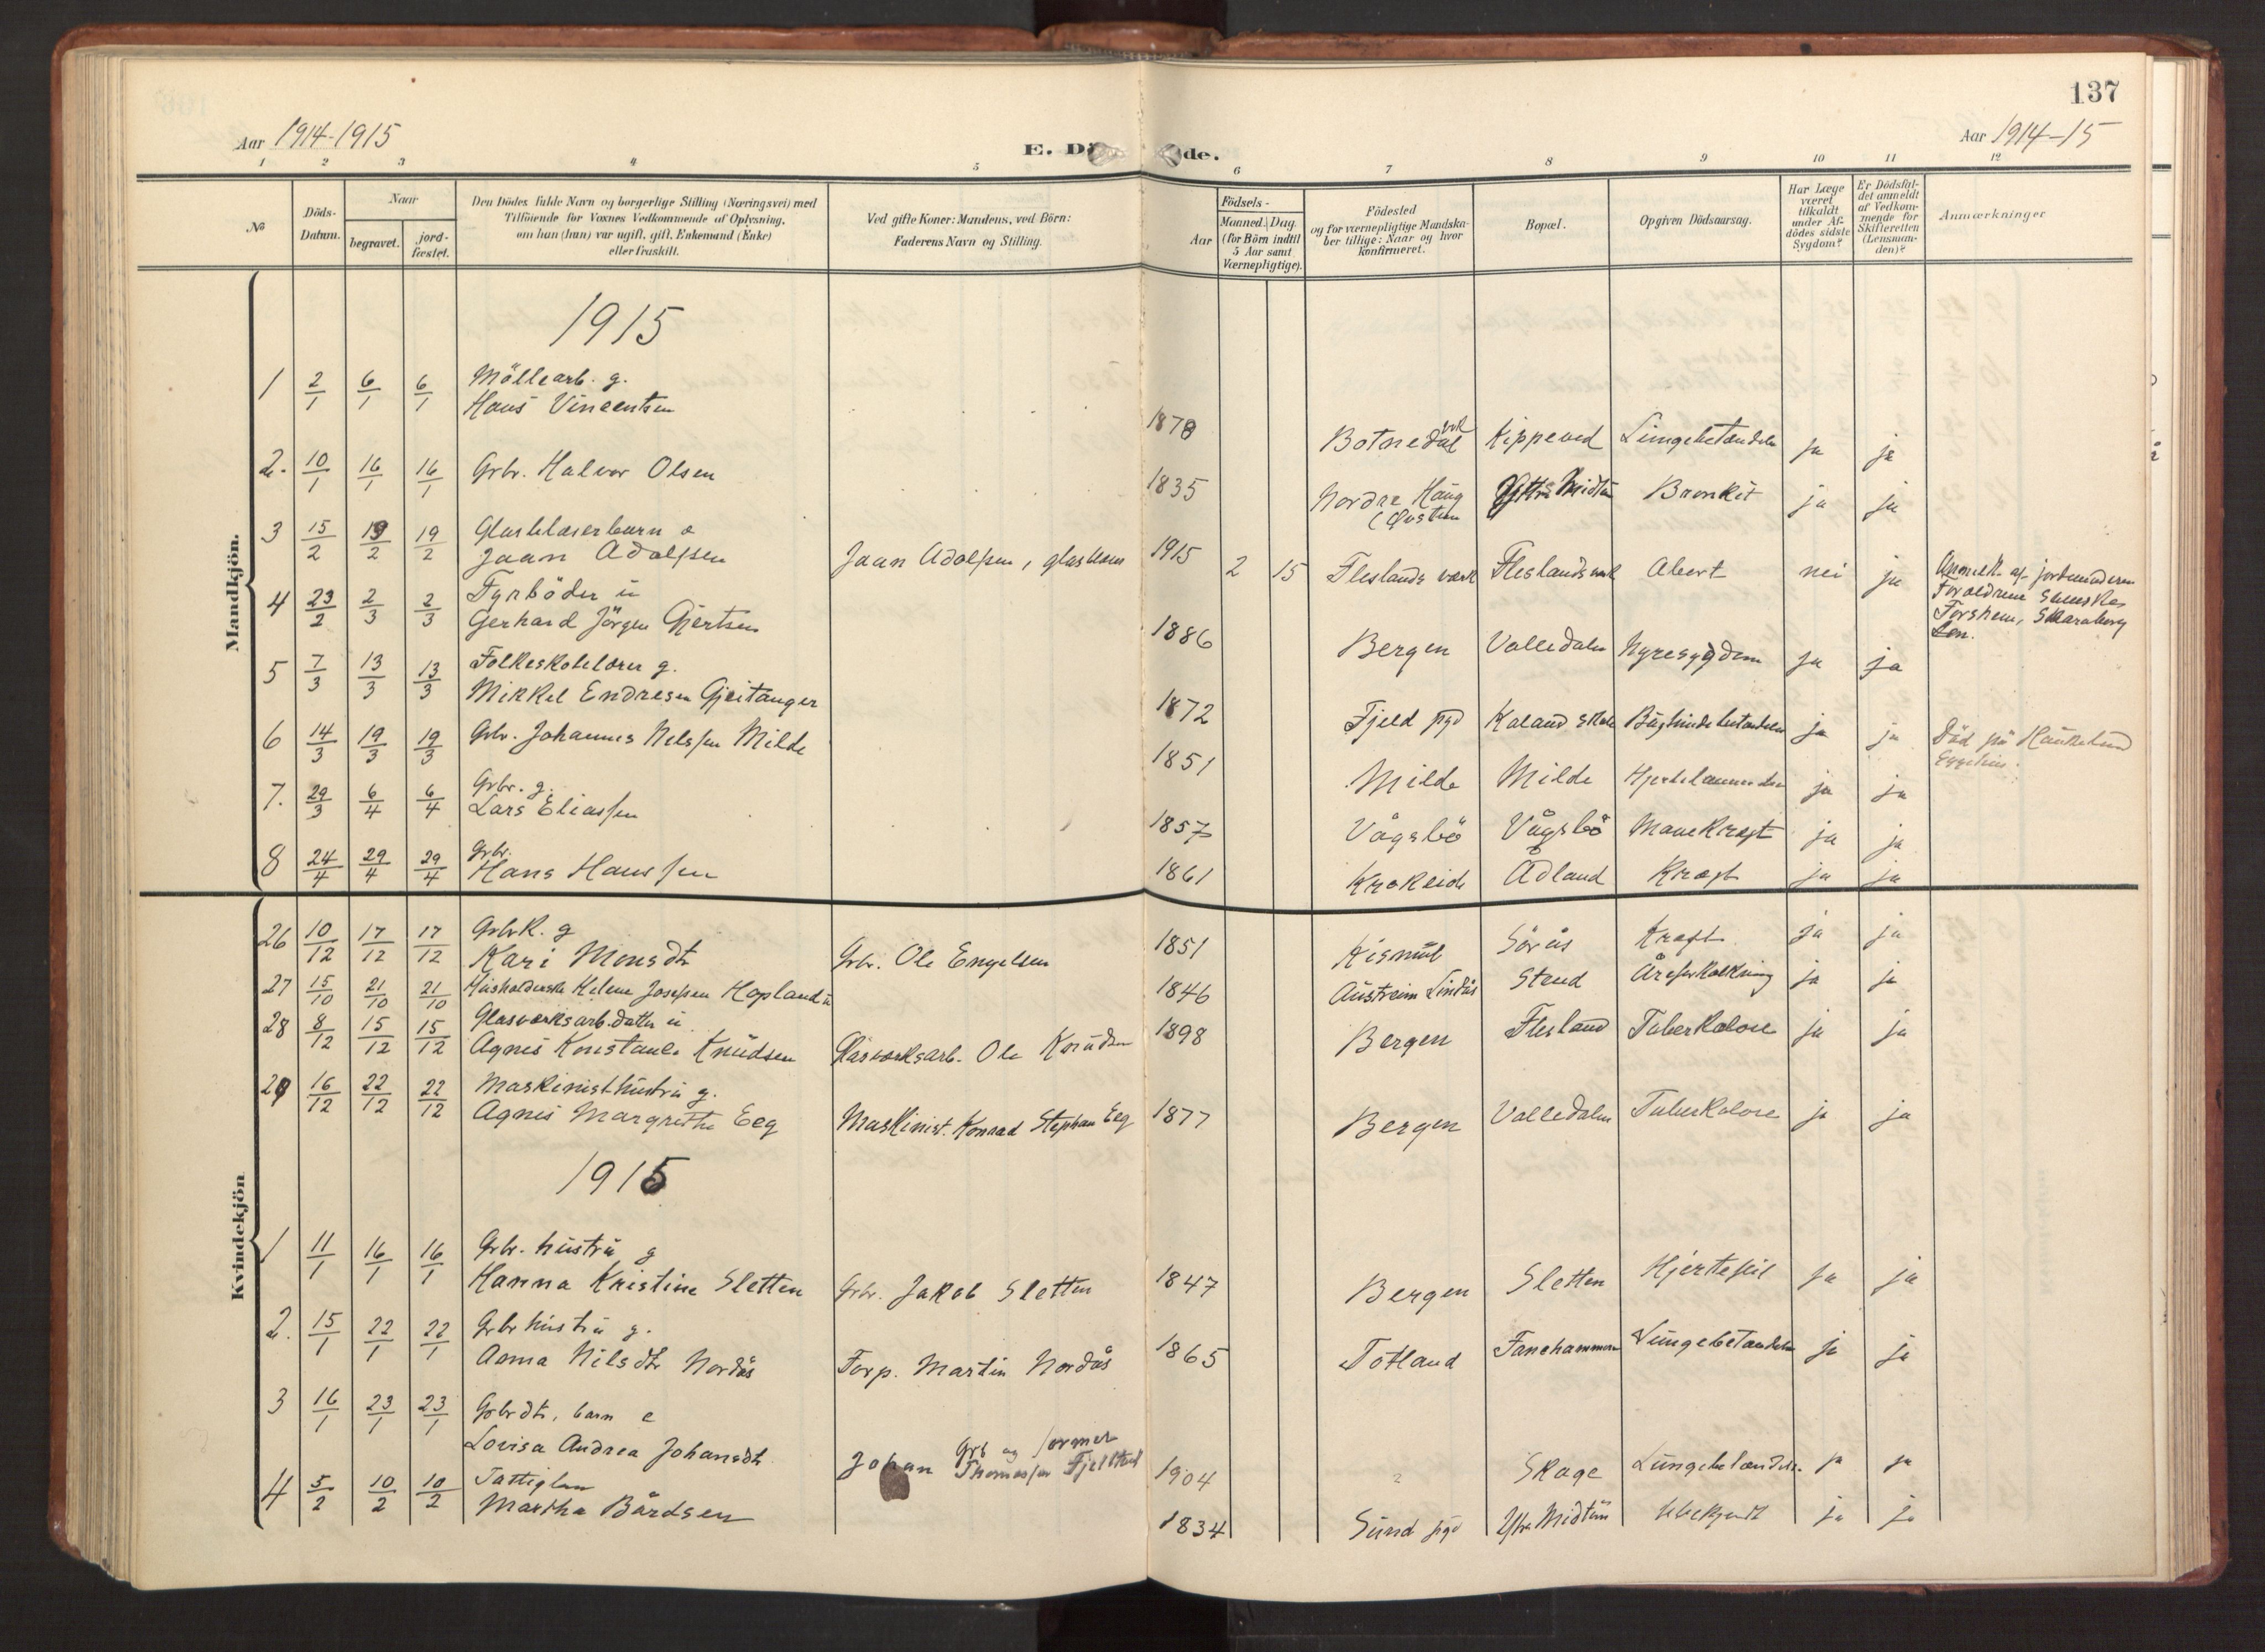 137
Aar 1914-1915
E. Dö de.
Aar 1914-15
1 2 3 4 5 6 7 8 9 10 11 12
No
Döds-Datum.
Naar
begravet.
jord-fæstet.
Den Dödes fulde Navn og borgerlige Stilling (Næringsvei) med
Tilföiende for Voxnes Vedkommende af Oplysning,
om han (hun) var ugift, gift, Enkemand (Enke)
eller fraskilt.
Ved gifte Koner: Mandens, ved Börn:
Faderens Navn og Stilling.
Födsels-
Aar
Maaned. Dag.
(for Börn indtil
5 Aar samt
Værnepligtige).
Födested
og for værnepligtige Mandska-
ber tillige: Naar og hvor
konfirmeret.
Bopæl.
Opgiven Dödsaarsag.
Har Læge
været
tilkaldt
under Af-
dödes sidste
Sygdom?
Er Dödsfal-
det anmeldt
af Vedkom-
mende for
Skifteretten
(Lensman-
den)?
Anmærkninger
Mandkjön.
1915
1 2/1 6/1 6/1 Möllearb. g.
Hans Vincentsen 1878 Botnedal Kippeved Lungebetændelse ja ja
2. 10/1 16/1 16/1 Grbr. Halvor Olsen 1835 Nordre Haug Yttre Midtun Bronkit ja ja
3 15/2 19/2 19/2 Glasblæserbarn e
Jaan Adolfsen Jaan Adolfsen, glasblæser 1915 2 15 Fleslands værk Fleslandsværk Abort nei ja Anmeldt af jordmoderen
Forældrene svenske
Forshem, Skaraborg
Len.
4 23/2 2/3 2/3 Fyrböder u
Gerhard Jörgen Gjertsen 1886 Bergen Valledalen Nyresygdom ja ja
5 7/3 13/3 13/3 Folkeskolelærer g.
Mikkel Endresen Gjeitanger 1872 Fjeld pgd Kaland skole Bughindebetændelse ja ja Död på Haukeland
6 14/3 19/3 19/3 Grbr. Johannes Nelssen Milde 1851 Milde Milde Hjertelammelse ja ja
7. 29/3 6/4 6/4 Grbr. g.
Lars Eliassen 1857 Vågsbö Vågsbö Mavekræft ja ja
8 24/4 29/4 29/4 grbr.
Hans Hanssen 1861 Krokeide Ådland Kræft ja ja
Kvindekjön
26 10/12 17/12 17/12 Grbrk. g
Kari Monsdtr Grbr. Ole Engelsen 1851 Kismul Sörås Kræft ja ja
27 15/10 21/10 21/10 Husholderske Helene Josefsen Hopland u 1846 Austreim Lindås Stend Åreforkalkning ja ja
28 8/12 15/12 15/12 Glasværksarb.datter u.
Agnes Konstance Knudsen Glasværksarb. Ole Knudsen 1898 Bergen Flesland Tuberkolose ja ja
29 16/12 22/12 22/12 Maskinisthustru g.
Agnes Margrethe Eeg Maskinist. Konrad Stephan Eeg 1877 Bergen Valledalen Tuberkolose ja ja
1915
1 11/1 16/1 16/1 Grbr. hustru g
Hanna Kristine Sletten Grbr. Jakob Sletten 1847 Bergen Sletten Hjertefeil ja ja
2. 15/1 22/1 22/1 Grbr hustru g.
Anna Nilsdtr Nordås Forp. Martin Nordås 1865 Totland Fanehammeren Lungebetændelse ja ja
3 16/1 23/1 23/1 Grbrdtr, barn e
Lovisa Andrea Johansdtr Johan Thomassen Grb og 1904 ? Skage Lungebetændelse. ja ja
4 5/2 10/2 10/2 Fattiglem
Martha Bårdsen 1834 Sund pgd Ytre Midtun Ubekjendt ja ja